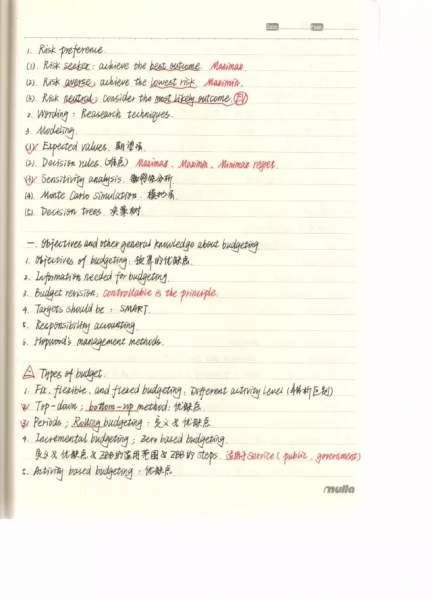 Date Page
1. Risk preference.
(1). Risk seeker: achieve the best outcome. Maximax.
(2). Risk averse, achieve the lowest risk. Maximin.
(3). Risk neutral, consider the most likely outcome.
2. Wording: Reasearch techniques.
3. Modeling.
(1) Expected values. 期望值.
(2). Decision rules. Maximax、Maximin、Minimax regret.
(3) Sensitivity analysis. 分析.
(4). Monte Carlo simulation. 模拟
(5). Decision trees. 决策树.
一. Objectives and other general knowledge about budgeting.
1. Objectives of budgeting: 预算的优缺点.
2. Information needed for budgeting.
3. Budget revision. Controllable is the principle.
4. Targets should be: SMART.
5. Responsibility accounting.
6. Hopwood's management methods.
二 Types of budget.
1. Fix, flexible, and flexed budgeting: Different activity level (解析区别)
2. Top-down; bottom-up method: 优缺点.
3. Periodic; Rolling budgeting: 定义&优缺点.
4. Incremental budgeting; Zero based budgeting.
定义&优缺点&ZBB的适用范围&ZBB的steps. 适用于service (public, government)
5. Activity based budgeting: 优缺点.
nulla